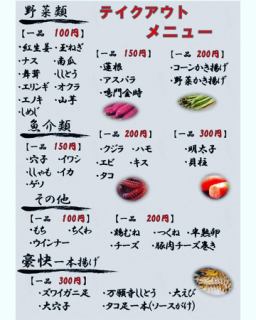 テイクアウト
メニュー
野菜類
【一品 100円】
・紅生姜・玉ねぎ
・ナス ・南瓜
・舞茸 ・ししとう
・エリンギ・オクラ
・エノキ ・山芋
・しめじ
【一品 150円】
・蓮根
・アスパラ
・鳴門金時
【一品 200円】
・コーンかき揚げ
・野菜かき揚げ
魚介類
【一品 150円】
・穴子 ・イワシ
・ししゃも・イカ
・ゲソ
【一品 200円】
・クジラ ・ハモ
・エビ ・キス
・タコ
【一品 300円】
・明太子
・貝柱
その他
【一品 100円】
・もち ・ちくわ
・ウインナー
【一品 200円】
・鶏むね ・つくね ・半熟卵
・チーズ ・豚肉チーズ巻き
豪快一本揚げ
【一品 300円】
・ズワイガニ足 ・万願寺ししとう ・大えび
・大穴子 ・タコ足一本(ソースがけ)